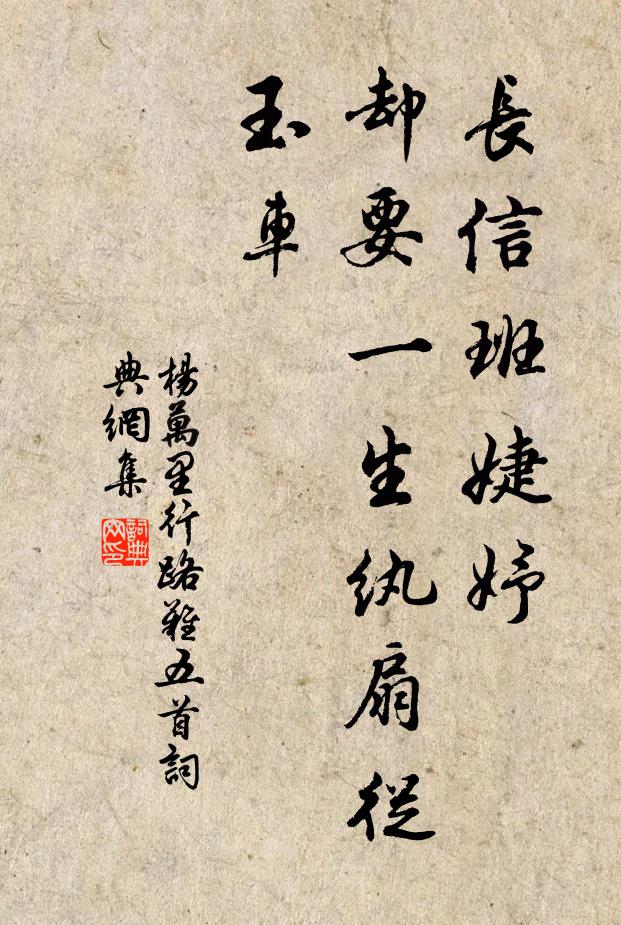 長信班婕妤
却要一生紈扇從
玉車
楊萬里行路難五首詞
典網集
詞典網印